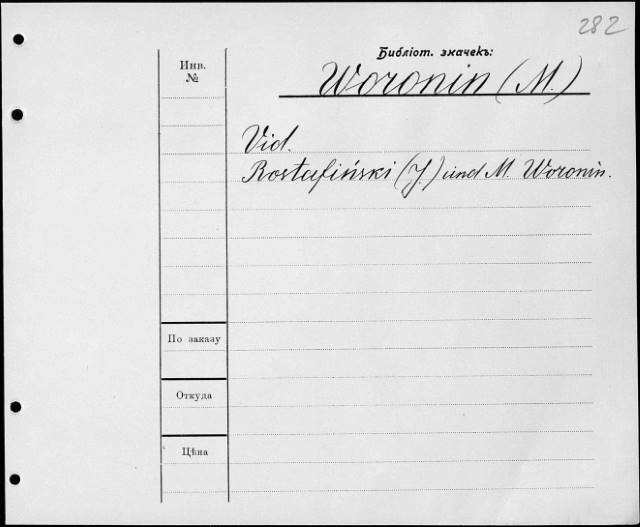 282
Библіот. значекъ:
Woronin (M.)
Инв.
№
Vid.
Rostafiński (J.) und M. Woronin.
По заказу
Откуда
Цѣна